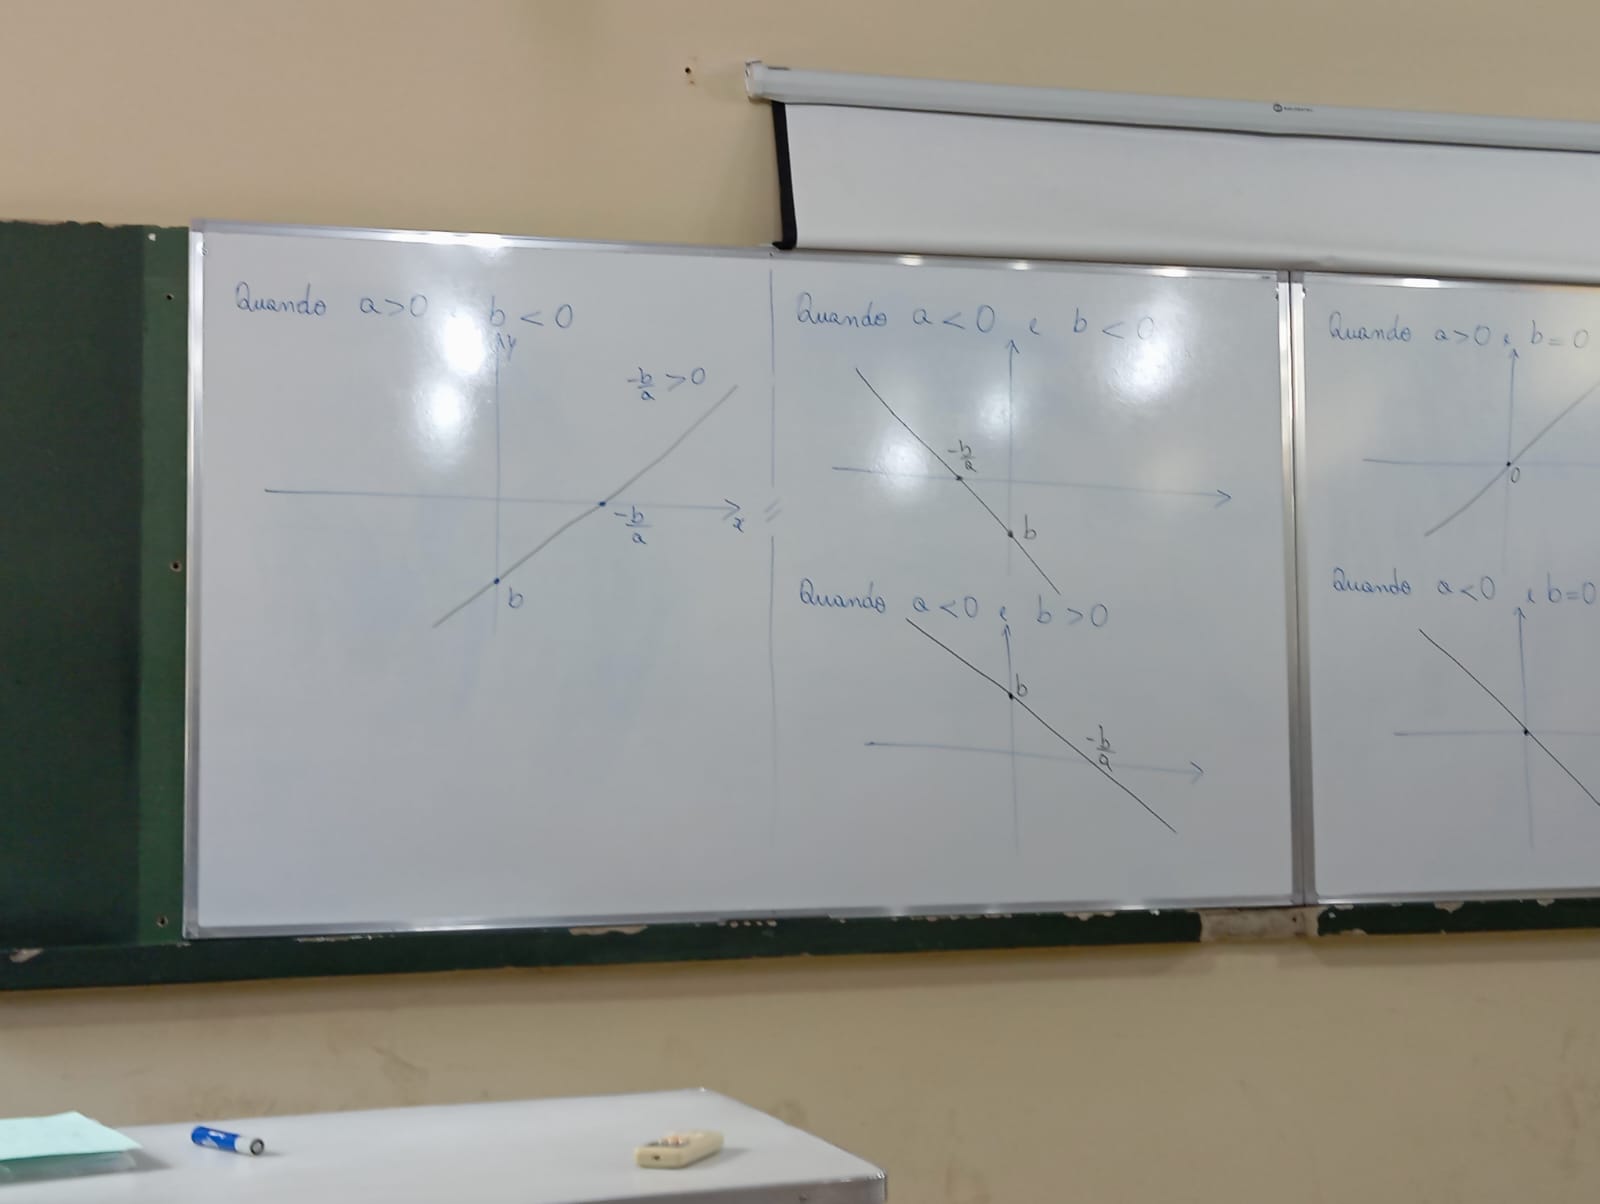 Quando a>0 e b<0
y
-b/a >0
-b/a
x
b
Quando a<0 e b<0
-b/a
b
Quando a<0 e b>0
b
-b/a
Quando a>0 e b=0
0
Quando a<0 e b=0